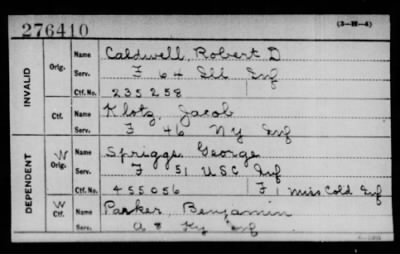 276410
(3-W-4)
INVALID
Orig.
Name Caldwell, Robert D
Serv. F 64 Ill Inf
Ctf. No. 235258
Ctf.
Name Klotz, Jacob
Serv. F 46 NY Inf
DEPENDENT
W
Orig.
Name Spriggs George
Serv. F 51 USC Inf
Ctf. No. 455056 F 1 Miss Cold Inf
W
Ctf.
Name Parker, Benjamin
Serv. A 8 Ky Inf